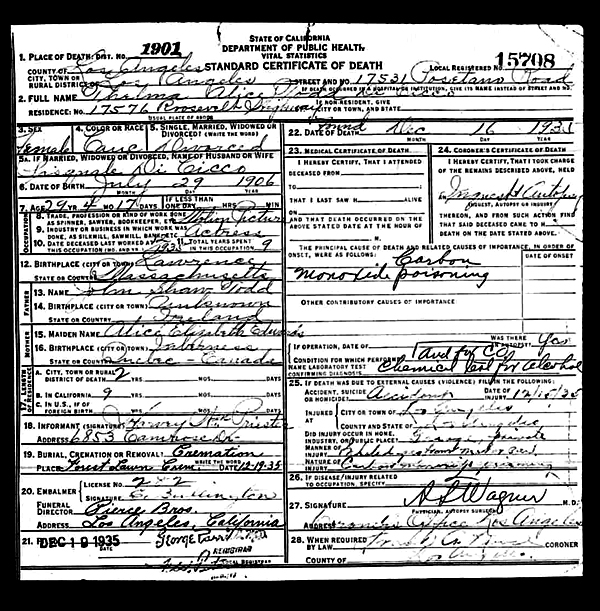 STATE OF CALIFORNIA
1901
DEPARTMENT OF PUBLIC HEALTH
VITAL STATISTICS
1. PLACE OF DEATH: DIST. NO.
STANDARD CERTIFICATE OF DEATH
LOCAL REGISTERED NO. 15708
COUNTY OF Los Angeles
CITY, TOWN OR RURAL DISTRICT OF Los Angeles
STREET AND NO. 17531 Posetano Road
IF DEATH OCCURRED IN A HOSPITAL OR INSTITUTION, GIVE ITS NAME INSTEAD OF STREET AND NO.
2. FULL NAME Thelma Alice Todd Di Cicco
RESIDENCE: NO. 17576 Roosevelt Highway
IF NON-RESIDENT, GIVE CITY OR TOWN, AND STATE
USUAL PLACE OF ABODE
3. SEX Female
4. COLOR OR RACE Cauc
5. SINGLE, MARRIED, WIDOWED OR DIVORCED? (WRITE THE WORD) Divorced
5A. IF MARRIED, WIDOWED OR DIVORCED, NAME OF HUSBAND OR WIFE
Pasquale Di Cicco
6. DATE OF BIRTH July 29 1906
MONTH DAY YEAR
7. AGE 29 YRS 4 MO 17 DAYS IF LESS THAN ONE DAY HRS MIN
OCCUPATION
8. TRADE, PROFESSION OR KIND OF WORK DONE AS SPINNER, SAWYER, BOOKKEEPER, ETC. Motion Picture
9. INDUSTRY OR BUSINESS IN WHICH WORK WAS DONE, AS SILKMILL, SAWMILL, BANK, ETC. Actress
10. DATE DECEASED LAST WORKED AT THIS OCCUPATION
11. TOTAL YEARS SPENT IN THIS OCCUPATION 9
12. BIRTHPLACE (CITY OR TOWN) Lawrence
STATE OR COUNTRY Massachusetts
FATHER
13. NAME John Shaw Todd
14. BIRTHPLACE (CITY OR TOWN) Unknown
STATE OR COUNTRY Ireland
MOTHER
15. MAIDEN NAME Alice Elizabeth Edwards
16. BIRTHPLACE (CITY OR TOWN) Inverness
STATE OR COUNTRY Quebec Canada
17. LENGTH OF RESIDENCE
A. CITY, TOWN OR RURAL DISTRICT OF DEATH 2 YRS MOS DAYS
B. IN CALIFORNIA 9 YRS MOS DAYS
C. IN U.S., IF OF FOREIGN BIRTH YRS MOS DAYS
18. INFORMANT (SIGNATURE) Priester
ADDRESS 6853 Camrose Dr
19. BURIAL, CREMATION OR REMOVAL? Cremation
WRITE THE WORD
PLACE Forest Lawn Crem. DATE 12-19-35
20. EMBALMER LICENSE NO. 282
SIGNATURE
FUNERAL DIRECTOR Pierce Bros.
ADDRESS Los Angeles, California
21. DEC 19 1935 George Parrish
REGISTRAR
22. DATE OF DEATH found Dec 16 1935
MONTH DAY YEAR
23. MEDICAL CERTIFICATE OF DEATH
I HEREBY CERTIFY, THAT I ATTENDED DECEASED FROM
TO
THAT I LAST SAW H ALIVE
ON
AND THAT DEATH OCCURRED ON THE ABOVE STATED DATE AT THE HOUR OF
M.
24. CORONER'S CERTIFICATE OF DEATH
I HEREBY CERTIFY, THAT I TOOK CHARGE OF THE REMAINS DESCRIBED ABOVE, HELD
AN Inquest Autopsy
INQUEST, AUTOPSY OR INQUIRY
THEREON, AND FROM SUCH ACTION FIND THAT SAID DECEASED CAME TO H DEATH ON THE DATE STATED ABOVE.
THE PRINCIPAL CAUSE OF DEATH AND RELATED CAUSES OF IMPORTANCE, IN ORDER OF ONSET, WERE AS FOLLOWS:
DATE OF ONSET
Carbon
Monoxide poisoning
OTHER CONTRIBUTORY CAUSES OF IMPORTANCE:
IF OPERATION, DATE OF
WAS THERE AN AUTOPSY? Yes
CONDITION FOR WHICH PERFORMED And for CO
NAME LABORATORY TEST CONFIRMING DIAGNOSIS Chemical Test for Alcohol
25. IF DEATH WAS DUE TO EXTERNAL CAUSES (VIOLENCE) FILL IN THE FOLLOWING:
ACCIDENT, SUICIDE OR HOMICIDE? Accident
DATE OF INJURY 12/15/35
INJURED AT CITY OR TOWN OF Los Angeles
COUNTY AND STATE OF Los Angeles
DID INJURY OCCUR IN HOME, INDUSTRY, OR PUBLIC PLACE? Garage private
MANNER OF INJURY
NATURE OF INJURY Carbon monoxide poisoning
26. IF DISEASE / INJURY RELATED TO OCCUPATION, SPECIFY
27. SIGNATURE A.F. Wagner M.D.
PHYSICIAN, AUTOPSY SURGEON
ADDRESS Coroner's Office Los Angeles
28. WHEN REQUIRED BY LAW Frank A. Nance CORONER
COUNTY OF Los Angeles